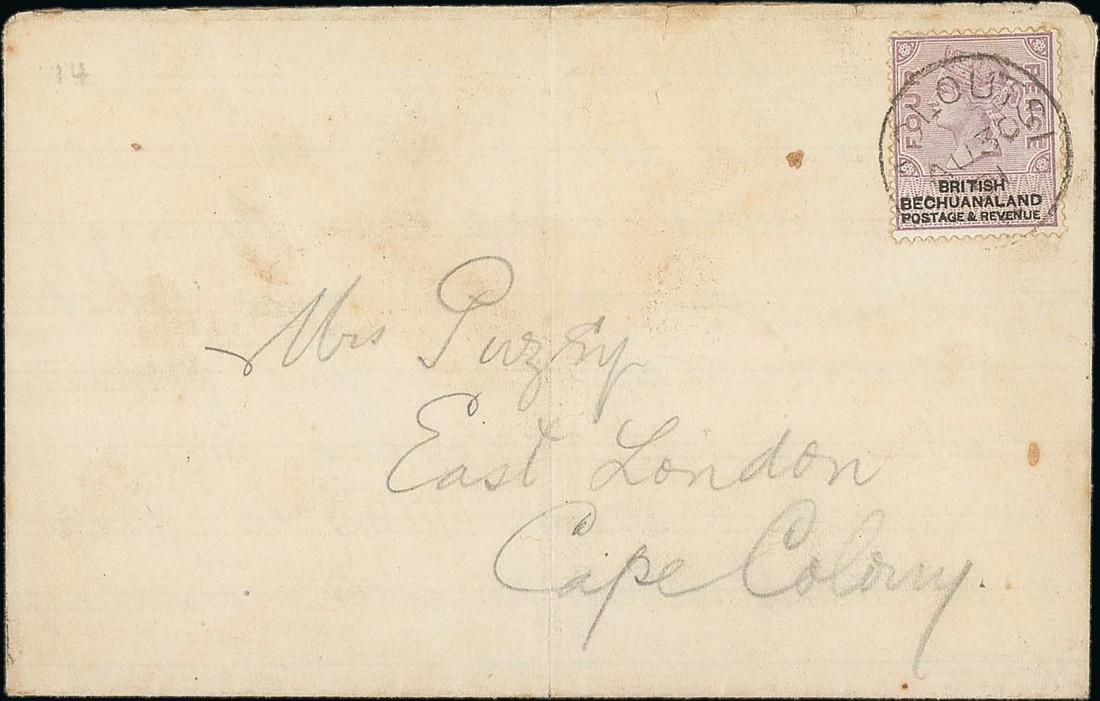 14
FOUR PENCE
BRITISH
BECHUANALAND
POSTAGE & REVENUE
AU 30
91
Mrs Puzey
East London
Cape Colony.